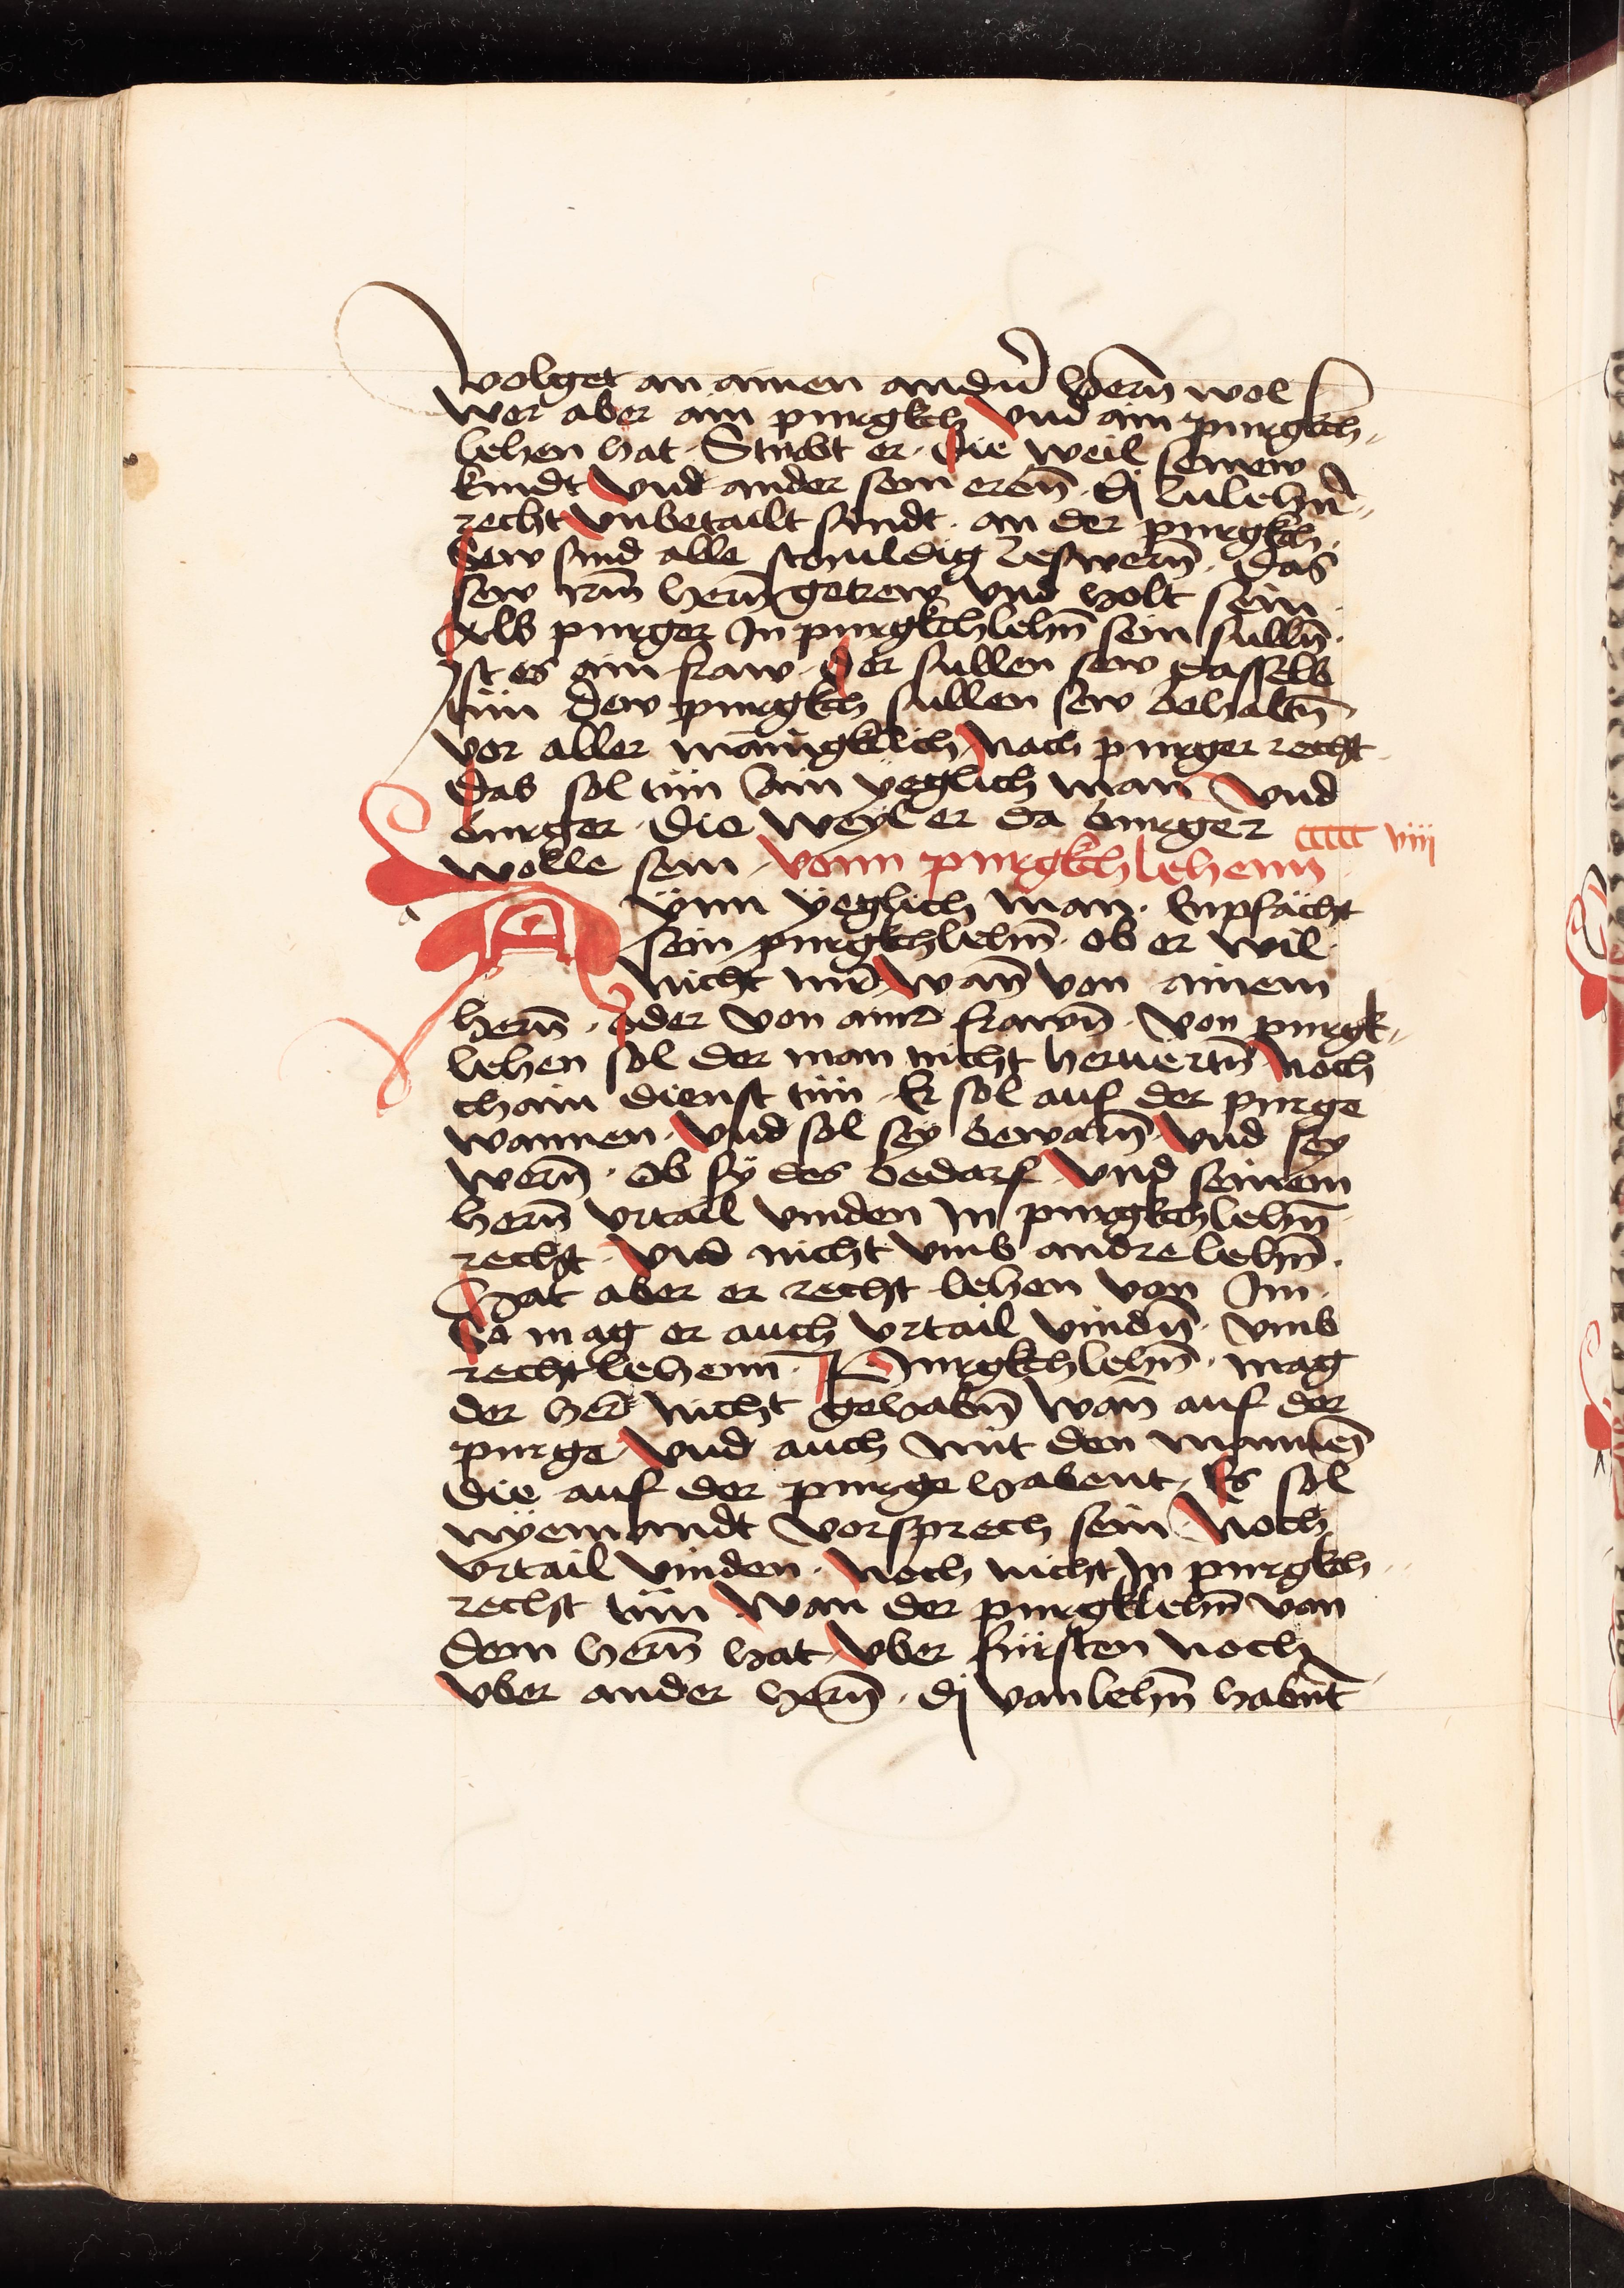 volget an ainen andern̄ herrn̄ wol
wer aber ain purgkch vnd ain purgkch„
lehen hat · Stirbt er · die weil seinew
kindt vnd ander sein erbn̄ · dj lulehn̄„
recht vnbetailt sindt · an der purgkch ·
Sew sind alle schuldig zeswern̄ · das
sew irm̄ hern̄ getrew vnd holt sein ·
Als purger In purgkchlehn̄ sein sulln̄ ·
Ist es ain fraw · der sullen sew dasselb
tün dew purgkch sullen sew behaltn̄ ·
vor aller mänigklich nach purger recht ·
das sol tün Ain yeglich man vnd
burger · Die weyl er da burger
wolle sein · vonn purgkchlehenn ccccc viij
a Aÿnn ÿeglich man · Enpfächt
sein purgkchlehn̄ · ob er wil ·
nicht nur wan̄ von ainem
hern̄ · oder von ainr̄ frawn̄ · von purgk„
lehen sol der man nicht heruertn̄ noch
chain dienst tün · Er sol auf der purge
wannen · vnd sol sey bewarn̄ · vnd sey
wern̄ · ob sÿ des bedarf · vnd seinem
hern̄ vrtail vinden In purgkchlehn̄
recht · vnd nicht vmb andre lehn̄ ·
Hat aber er recht lehen von Im ·
So mag er auch vrtail vindn̄ · vmb
recht lehenn · Purgkchlehn̄ · mag
der her̄ nicht gehabn̄ wan̄ auf der
purge vnd auch mit den mannen̄
die auf der purge habent · Es sol
nÿemandt vorsprech sein · Noch
vrtail vinden · noch nicht In purgkch„
recht tün wan der purgklehn̄ von
dem hern̄ hat · vber fürsten noch
vber ander hern̄ · dj vanlehn̄ habn̄t